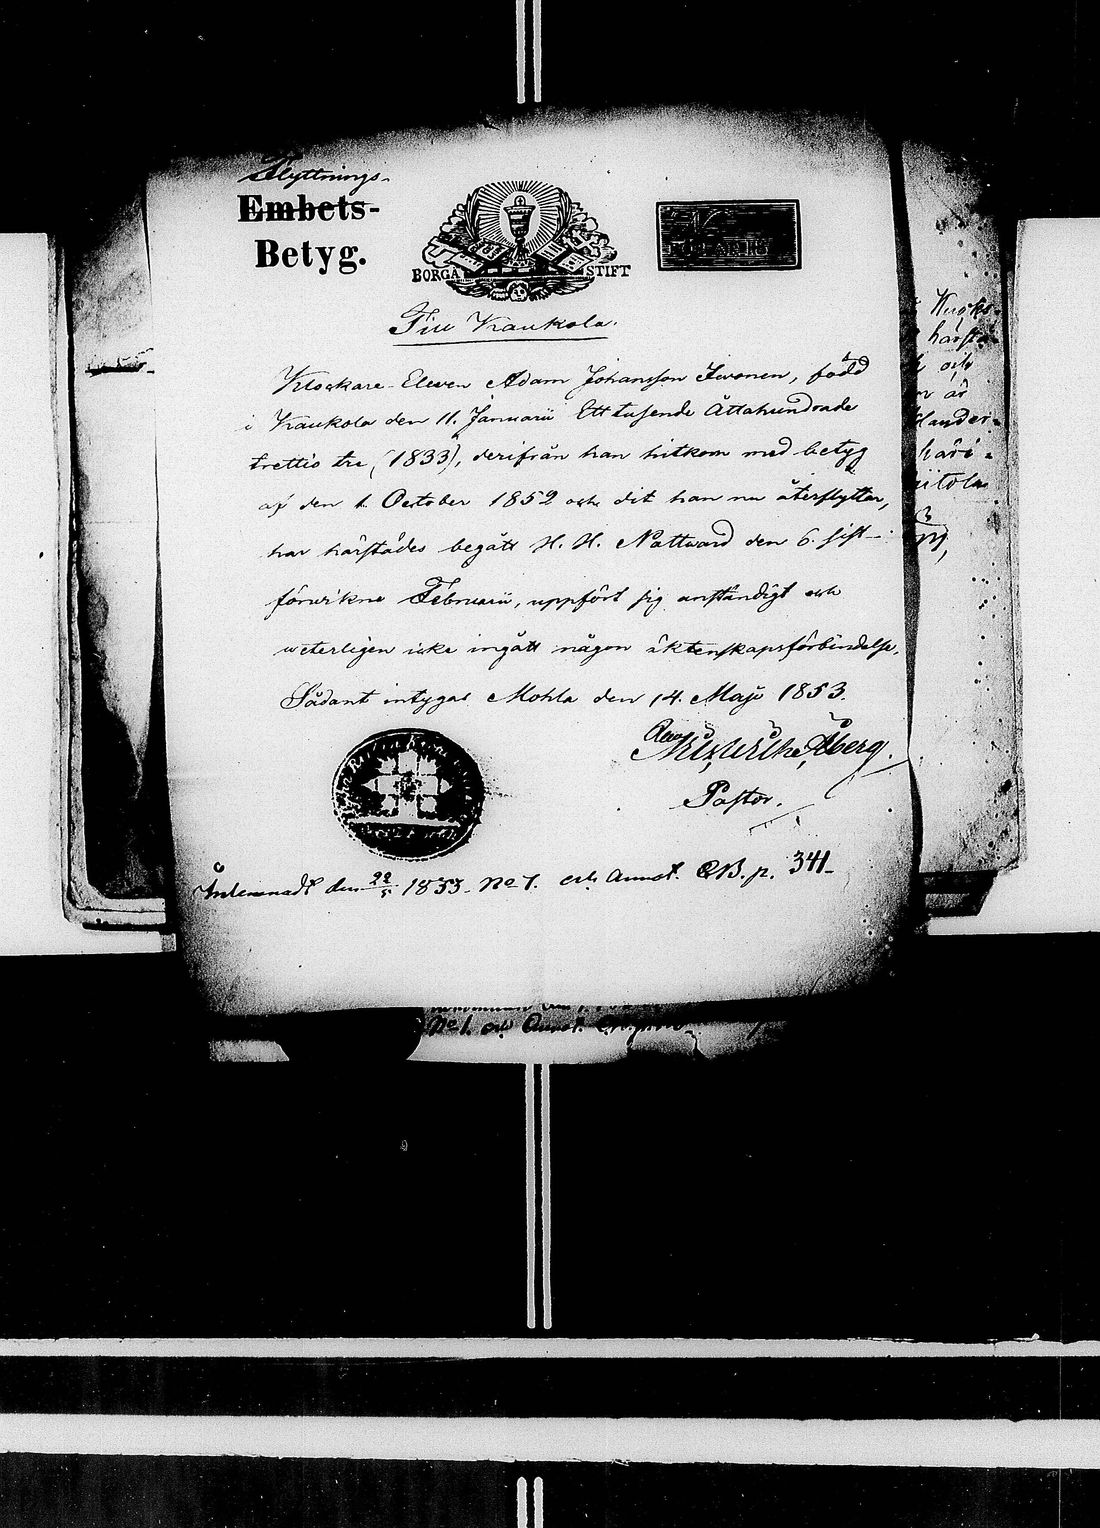 Flyttnings-
Embets-
Betyg.
BORGÅ STIFT
Till Kaukola.
Klockare-Eleven Adam Johansson Iwonen, född
i Kaukola den 11. Januarii Ett tusende Åttahundrade
trettio tre (1833), derifrån han hitkom med betyg
af den 1. October 1852 och dit han nu återflyttar,
har härstädes begått H. H. Nattward den 6. sist-
förwikne Februarii, uppfört sig anständigt och
weterligen icke ingått någon äktenskapsförbindelse.
Sådant intygas Mohla den 14. Maji 1853.
Åberg.
Pastor.
Inlemnadt den 22/5 1853. No 1. och Annot. p. 341.
härsta
och
är
No 1. och Annot.